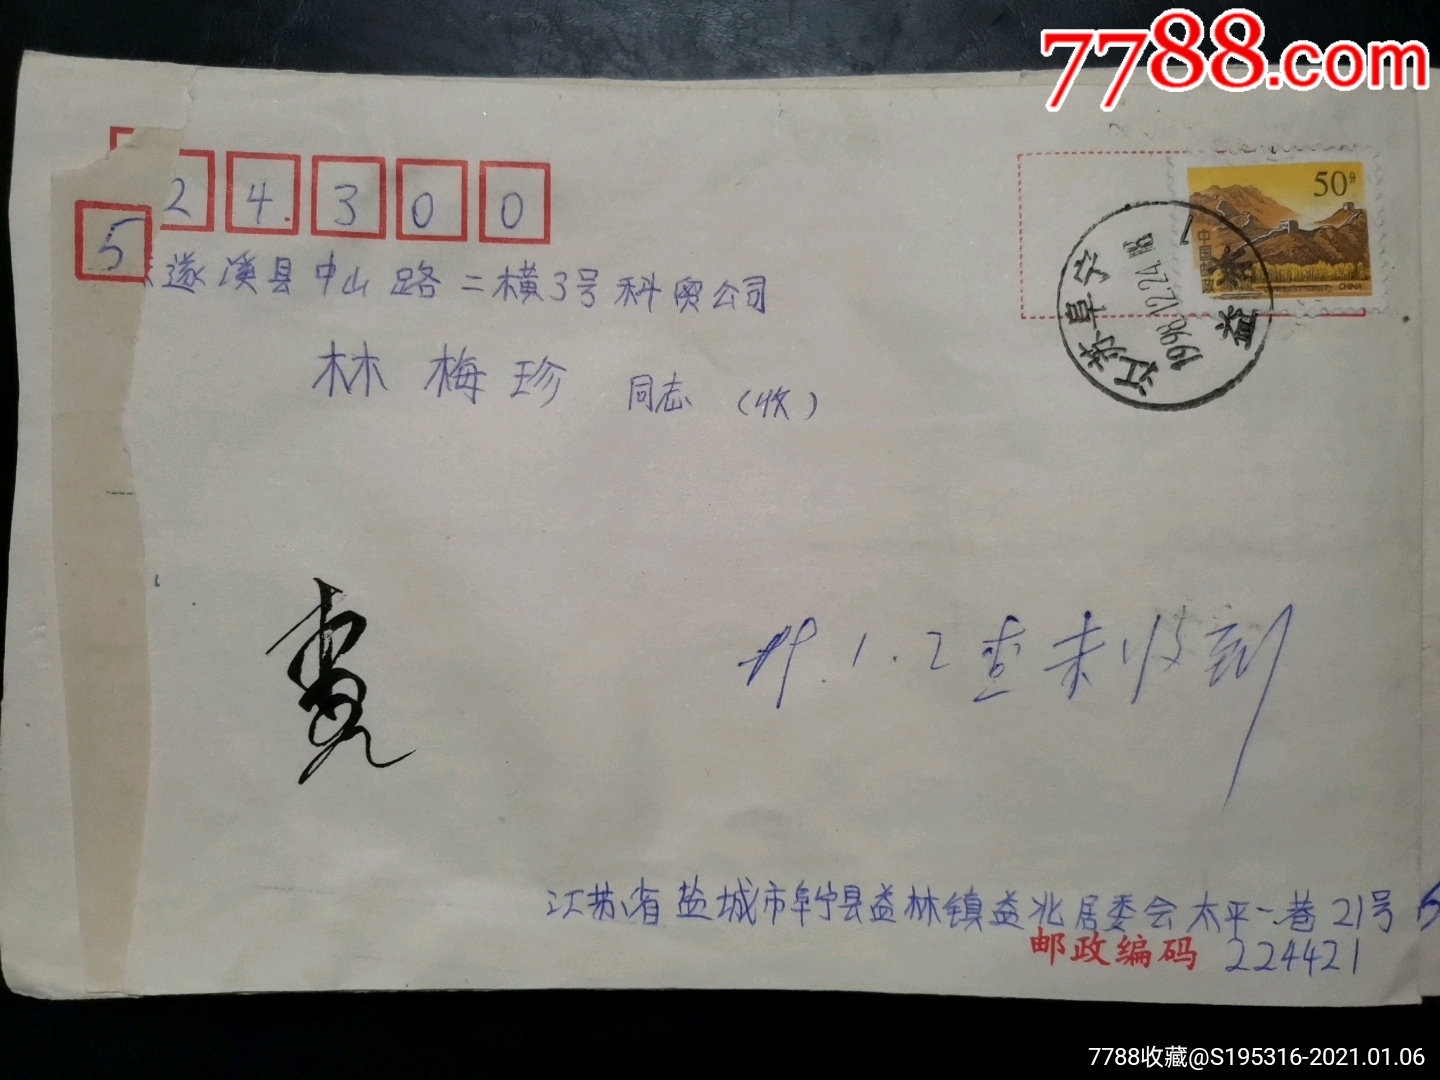 7788.com
524300
遂溪县中山路二横3号科贸公司
林梅珍 同志 (收)
50分
中国邮政
CHINA
江苏阜宁
1998.12.24.18
益林
99.1.2查未收到
江苏省盐城市阜宁县益林镇益北居委会太平二巷21号
邮政编码 224421
7788收藏@S195316-2021.01.06